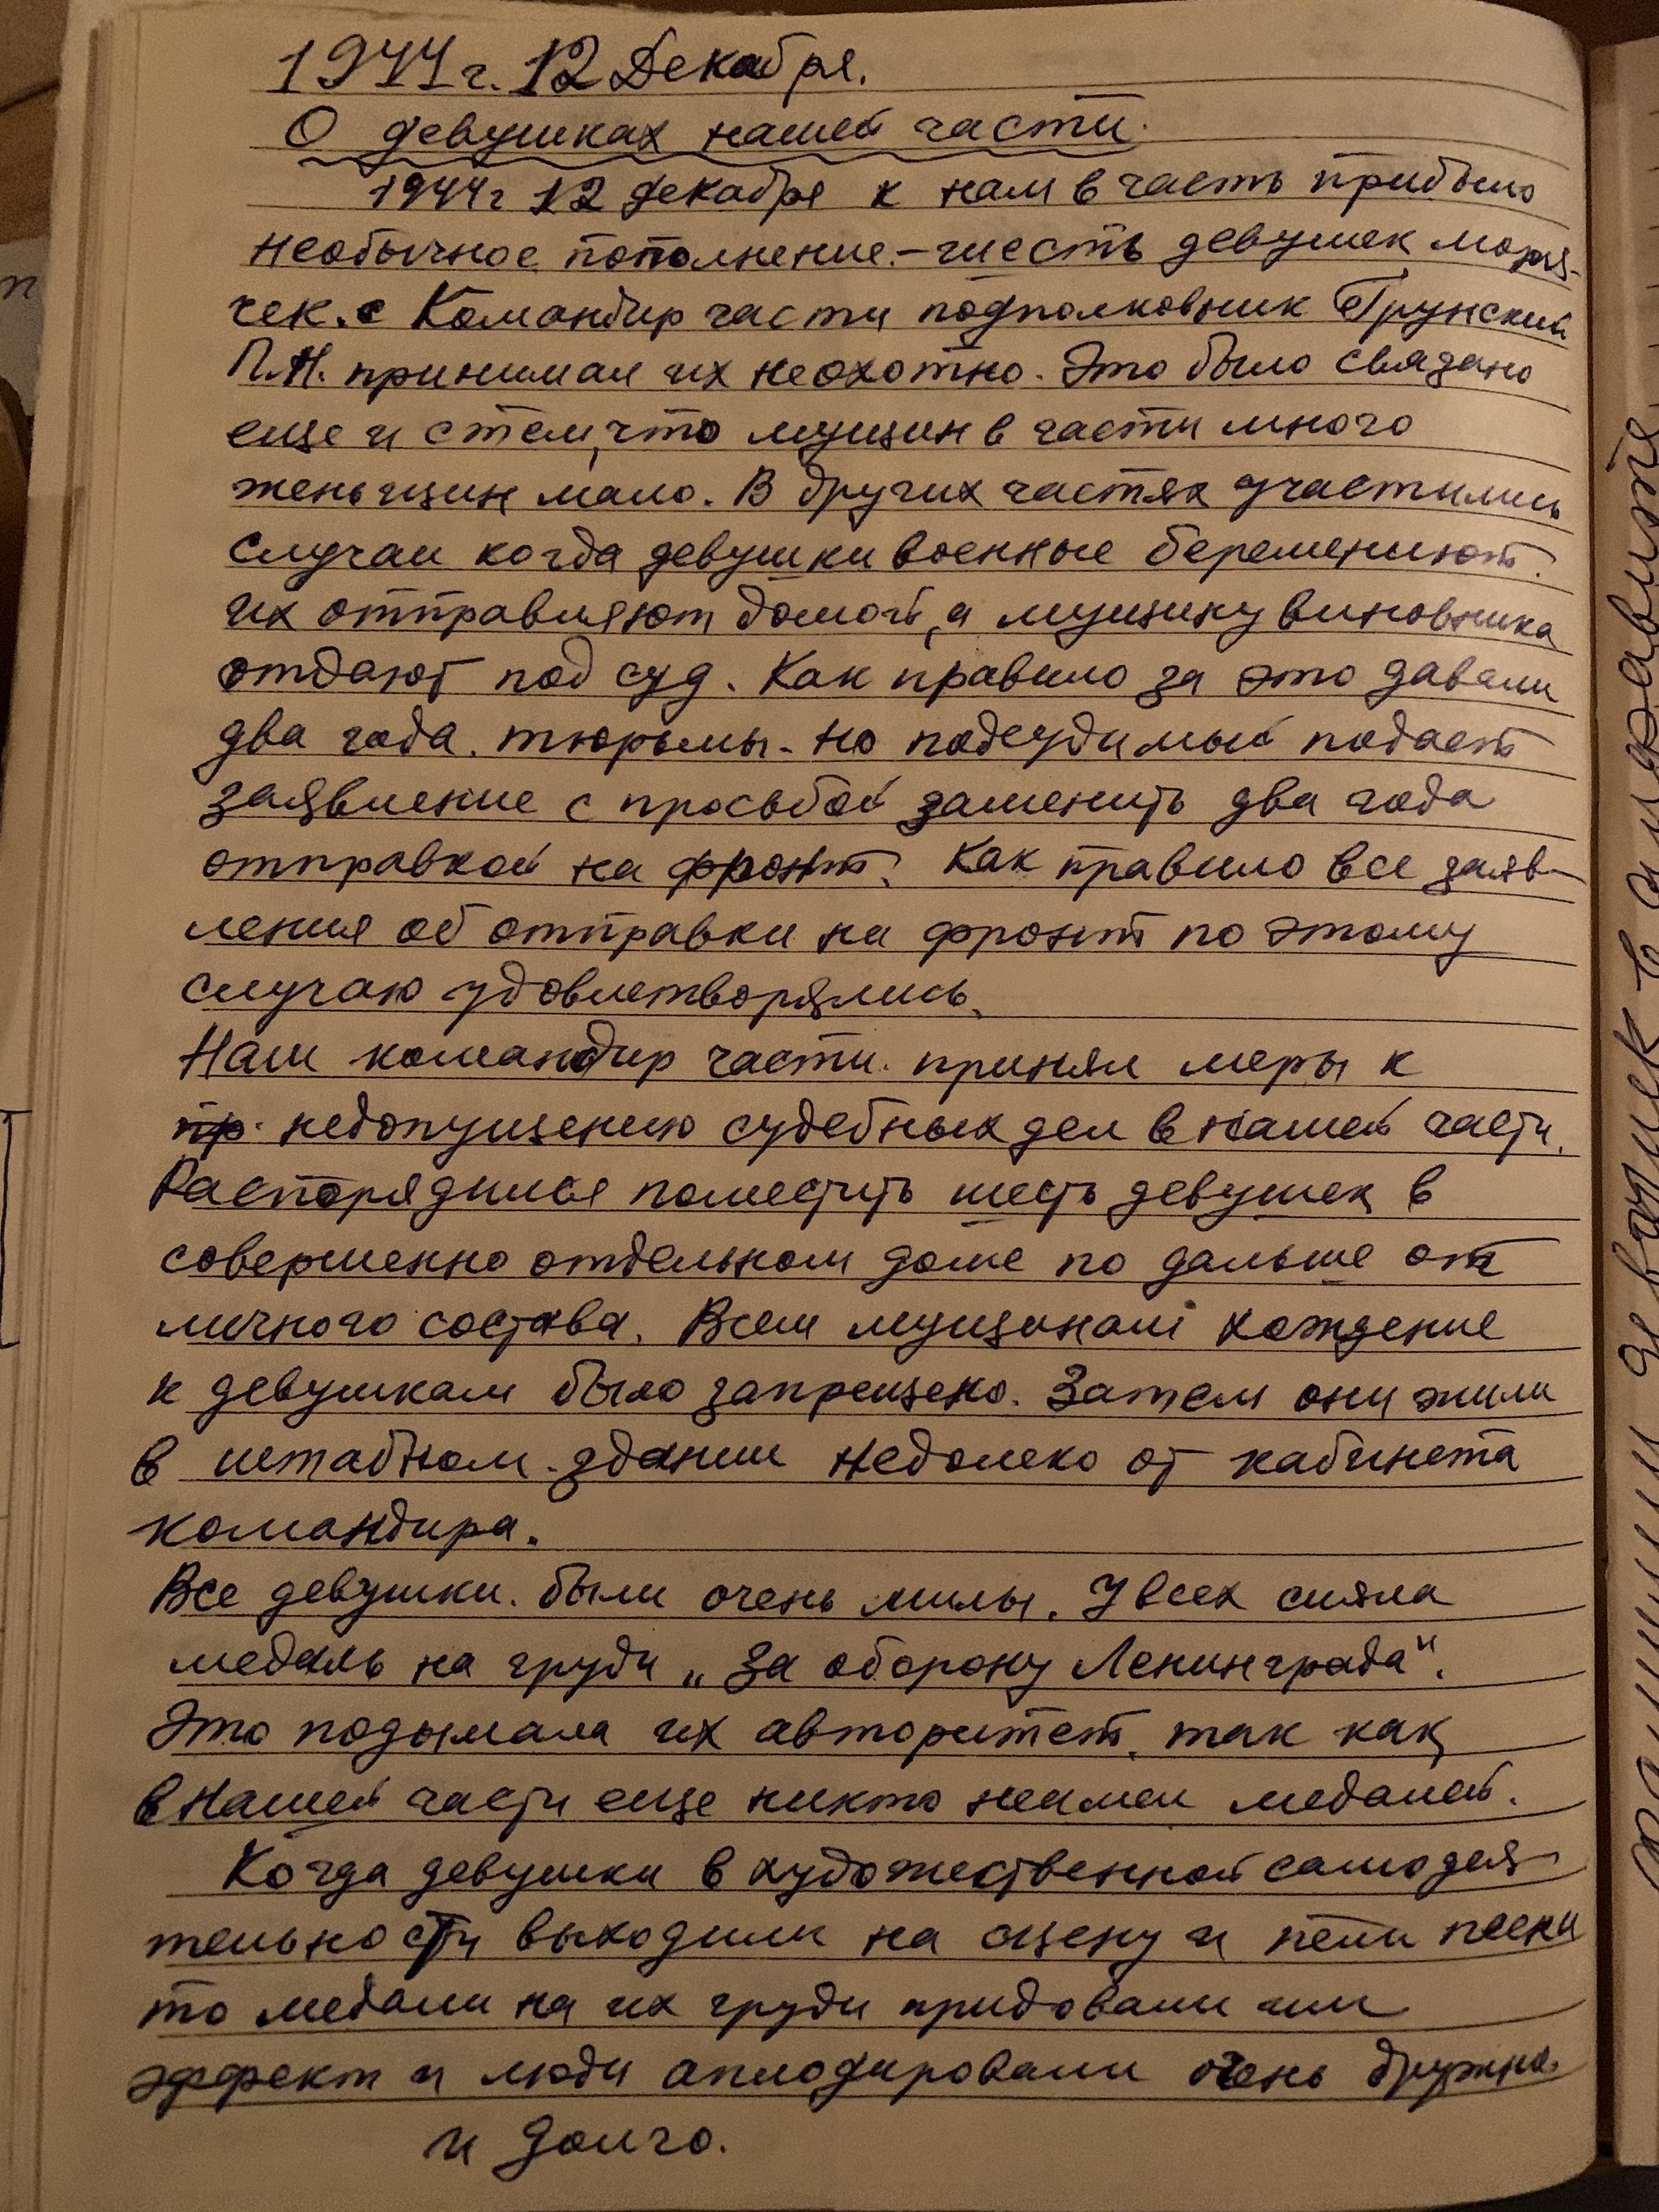 1944г. 12 Декабря.
О девушках нашей части.
1944г 12 декабря к нам в часть прибыло
необычное пополнение – шесть девушек моря-
чек. Командир части подполковник Грунский
П.Н. принимал их неохотно. Это было связано
еще и с тем, что мущин в части много
женьщин мало. В других частях участились
случаи когда девушки военные беременют.
их отправляют домой, а мущину виновника
отдают под суд. Как правило за это давали
два года тюрьмы. но подсудимый подает
заявление с просьбой заменить два года
отправкой на фронт. Как правило все заяв-
ления об отправки на фронт по этому
случаю удовлетворялись.
Наш командир части принял меры к
пр. недопущению судебных дел в нашей части.
Распорядился поместить шесть девушек в
совершенно отдельном доме по дальше от
личного состава. Всем мущинам хождение
к девушкам было запрещено. Затем они жили
в штабном здании недолеко от кабинета
командира.
Все девушки были очень милы. У всех сияла
медаль на груди „За оборону Ленинграда".
Это подымала их авторитет, так как
в нашей части еще никто неимел медалей.
Когда девушки в художественной самодея-
тельности выходили на сцену и пели песни
то медали на их груди придовали им
эффект и люди аплодировали очень дружно
и долго.
девочек в